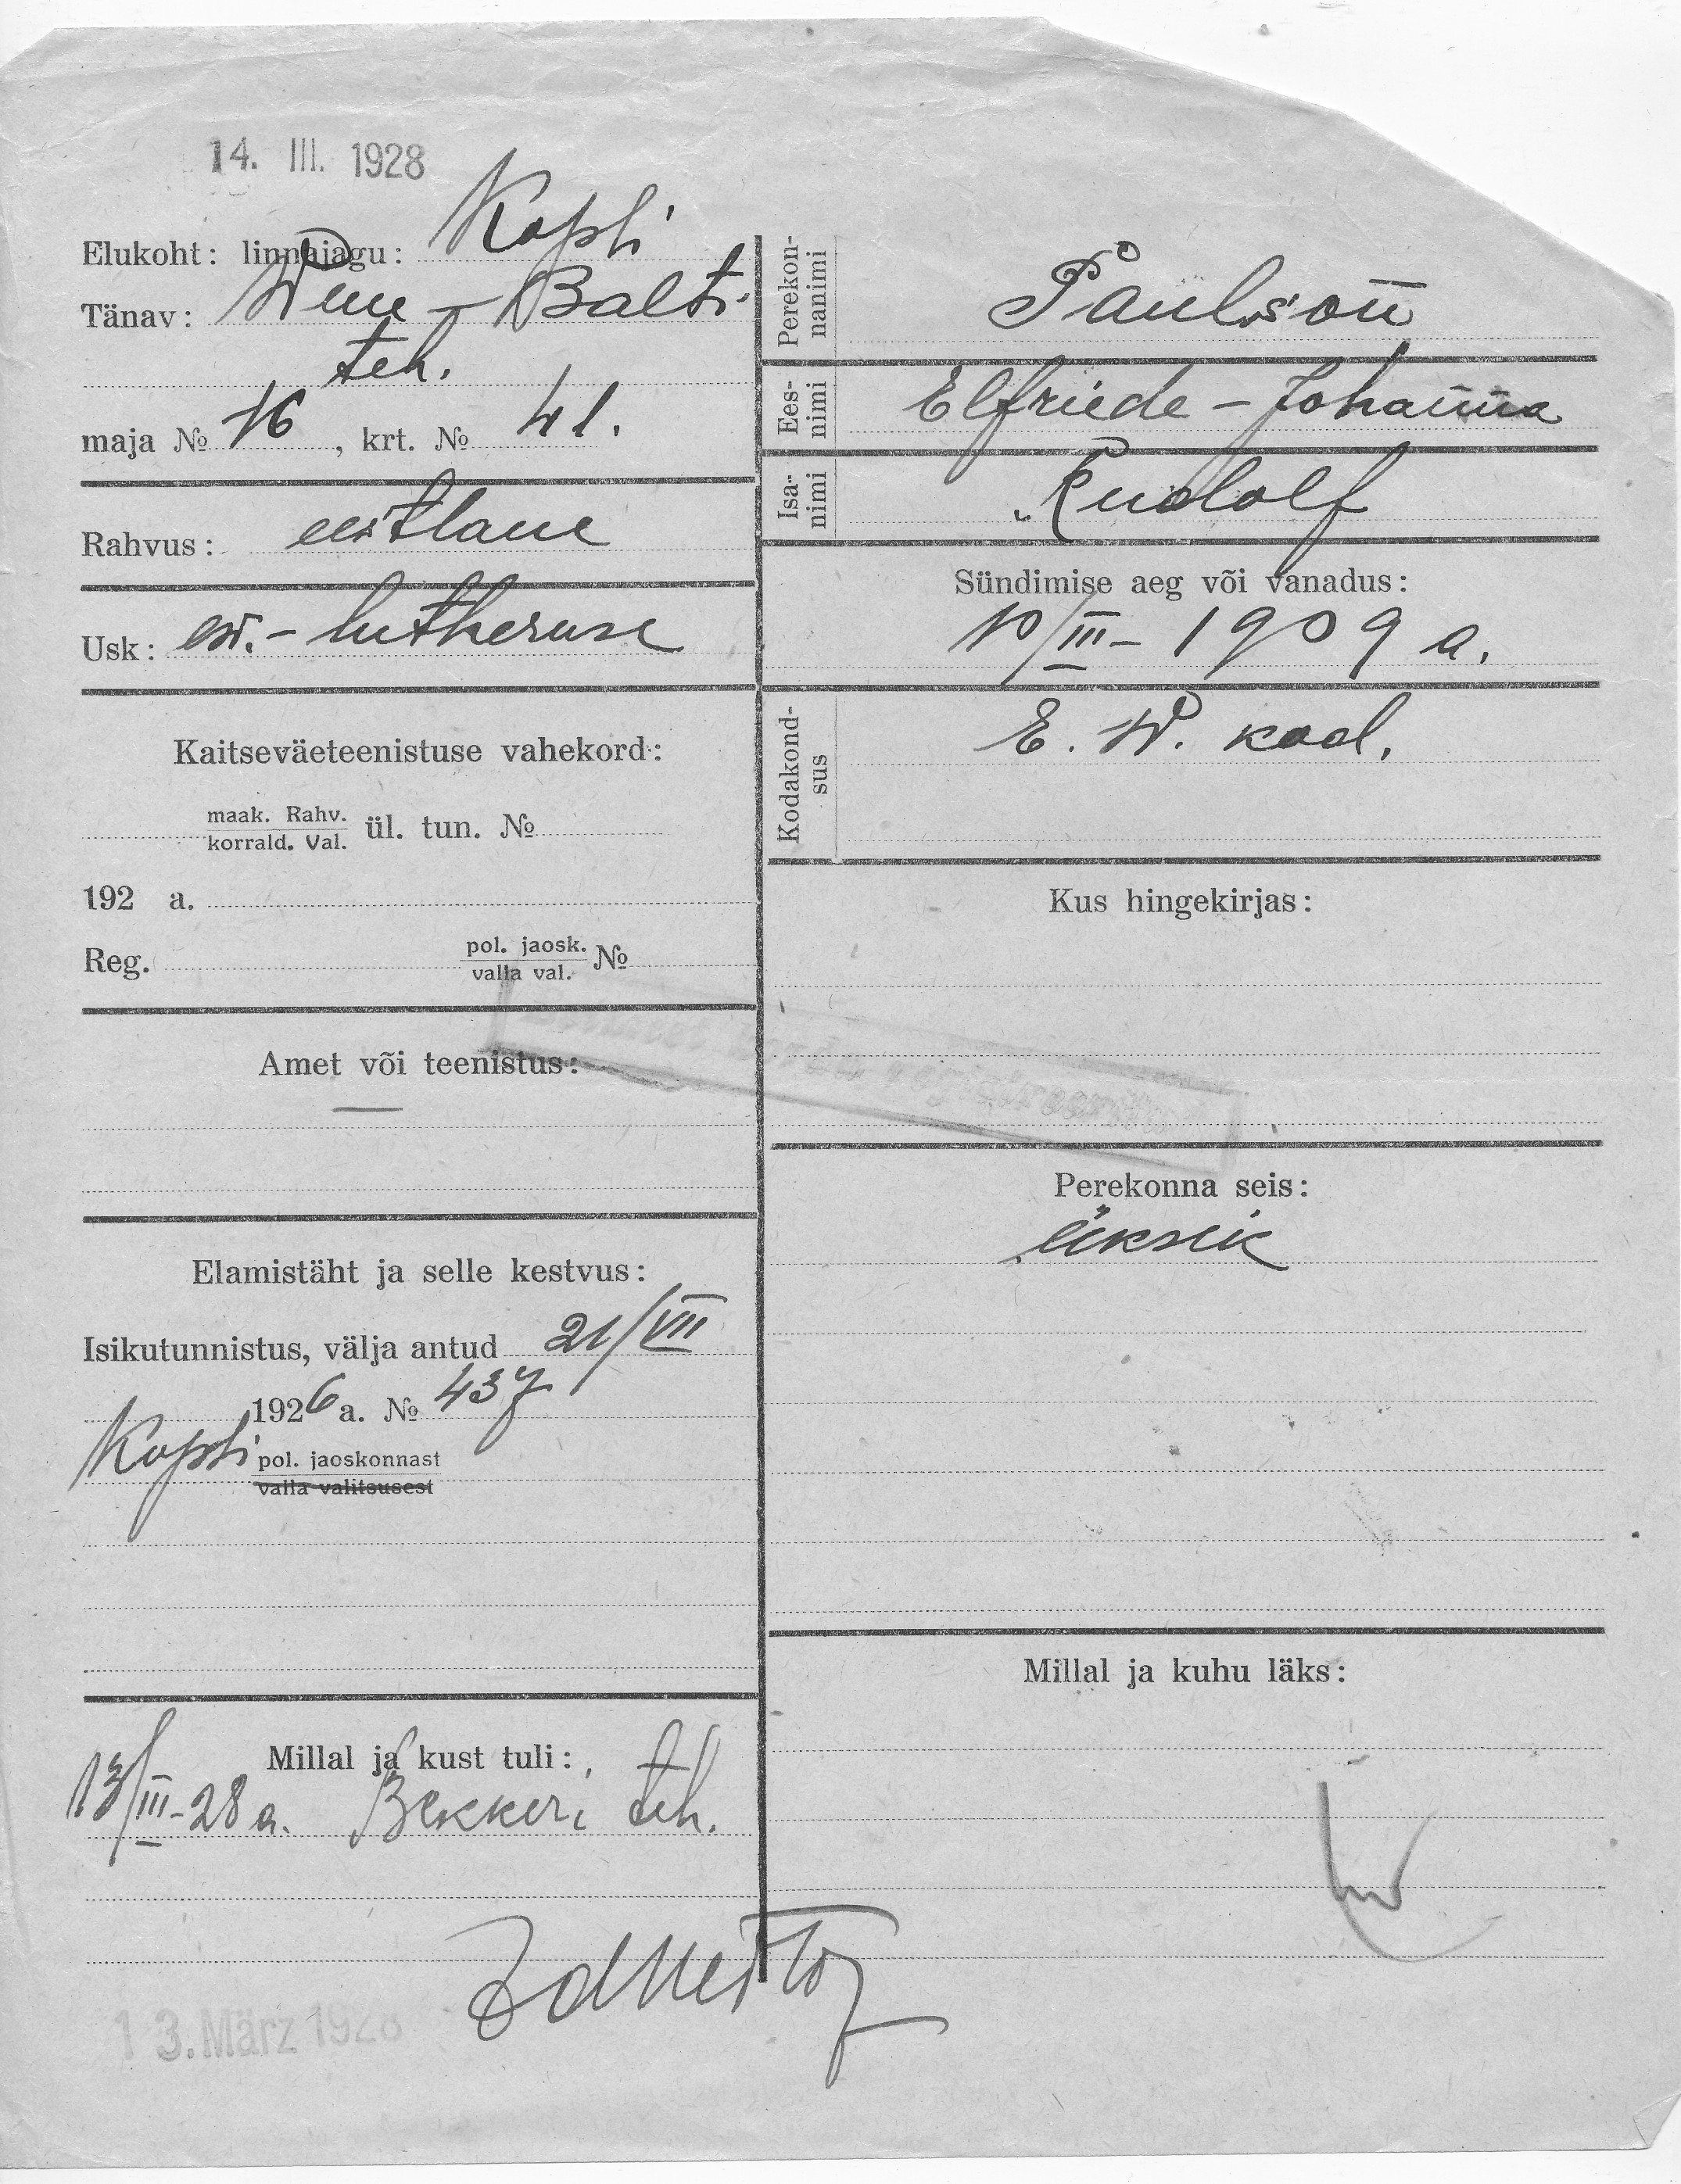 14. III. 1928
Elukoht: linnajagu: Kopli
Tänav: Wene-Balti
teh.
maja № 16, krt. № 41.
Rahvus: eestlane
Usk: ev.-lutheruse
Kaitseväeteenistuse vahekord:
maak. Rahv.
korrald. Val. ül. tun. №
192 a.
Reg. pol. jaosk.
valla val. №
Amet või teenistus:
—
Elamistäht ja selle kestvus:
Isikutunnistus, välja antud 21/VII
1926 a. № 437
Kopli pol. jaoskonnast
valla valitsusest
Millal ja kust tuli:
13/III-28 a. Bekkeri teh.
13. März 1928
Perekon-
nanimi
Paulson
Ees-
nimi
Elfriede-Johanna
Isa-
nimi
Rudolf
Sündimise aeg või vanadus:
10/III-1909 a.
Kodakond-
sus
E. W. kod.
Kus hingekirjas:
Perekonna seis:
üksik
Millal ja kuhu läks: